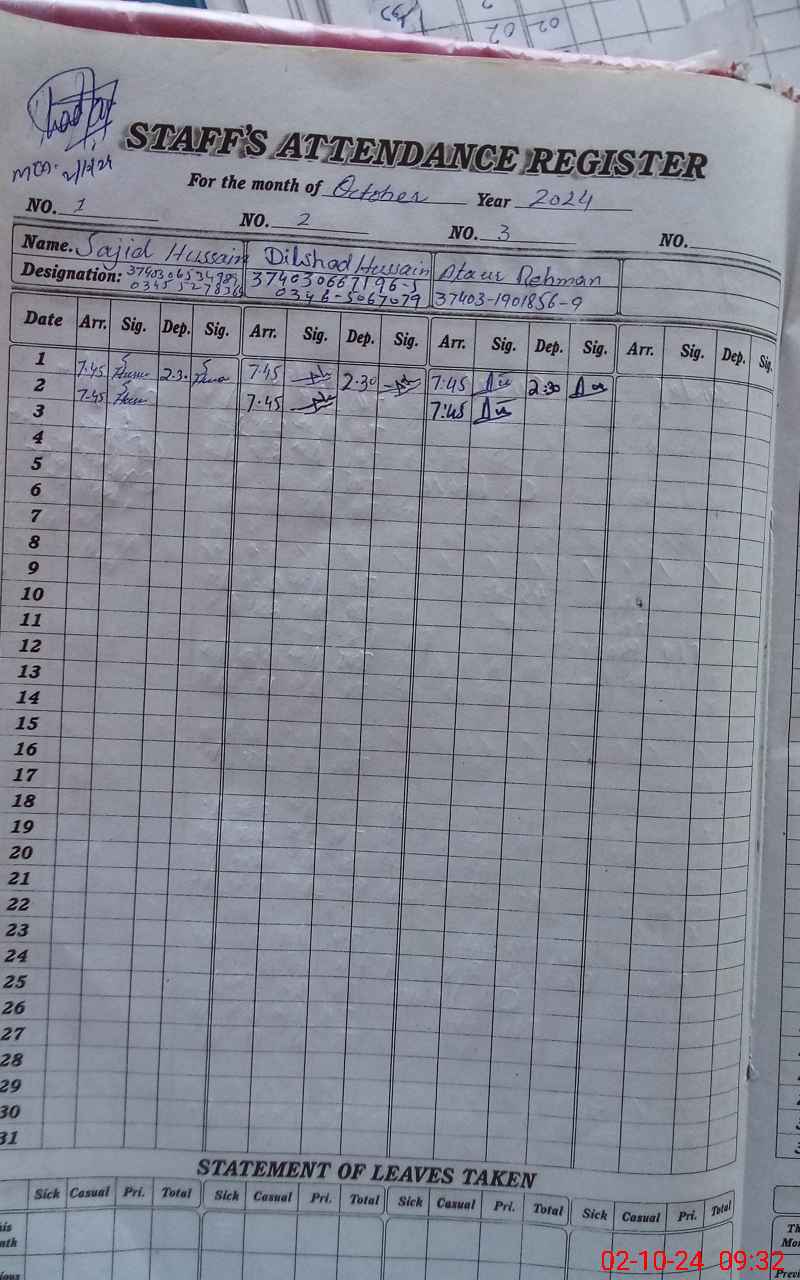 20 20
STAFF'S ATTENDANCE REGISTER
For the month of October Year 2024
NO. 1 NO. 2 NO. 3 NO.
Name. Sajid Hussain Dilshad Hussain Ataur Rehman
Designation: 374030667196-5 37403-1901856-9
0346-5067079
Date Arr. Sig. Dep. Sig. Arr. Sig. Dep. Sig. Arr. Sig. Dep. Sig. Arr. Sig. Dep. Sig.
1 7:45 2:30 7:45 2:30 7:45 2:30
2 7:45 7:45 7:45
3
4
5
6
7
8
9
10
11
12
13
14
15
16
17
18
19
20
21
22
23
24
25
26
27
28
29
30
31
STATEMENT OF LEAVES TAKEN
Sick Casual Pri. Total Sick Casual Pri. Total Sick Casual Pri. Total Sick Casual Pri. Total
02-10-24 09:32